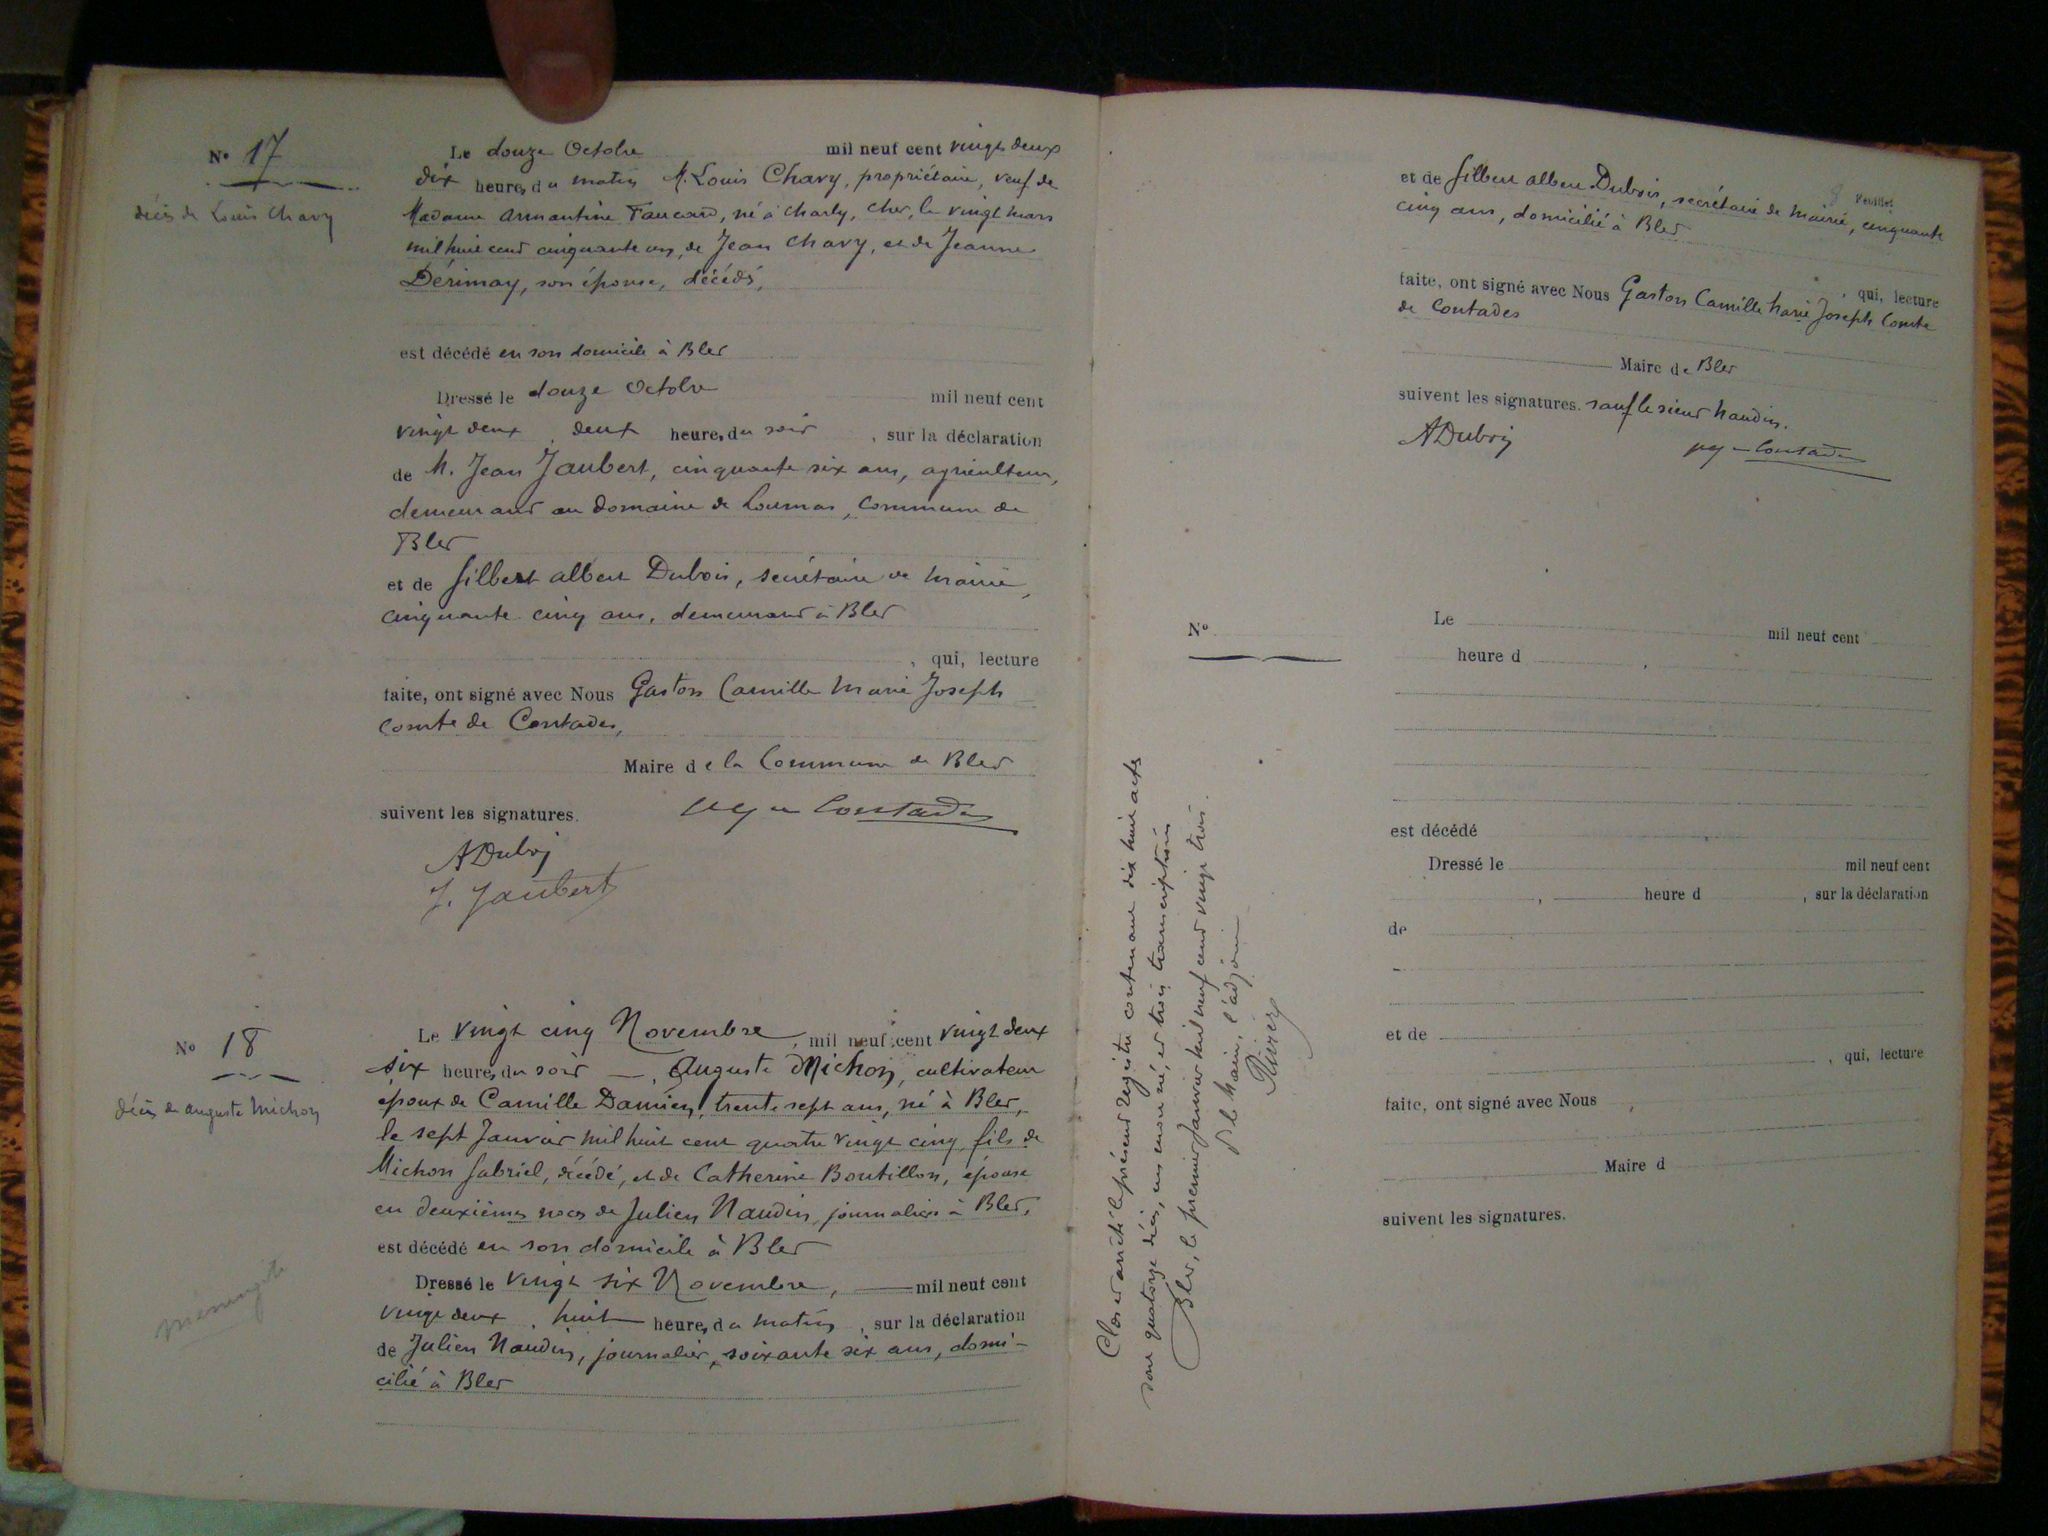 N° 17
décès de Louis Chavy
Le douze Octobre mil neuf cent vingt deux
dix heures du matin M. Louis Chavy, propriétaire, veuf de
Madame Armantine Faucard, né à Charly, Cher, le vingt mars
mil huit cent cinquante un, de Jean Chavy, et de Jeanne
Dérimay, son épouse, décédés,
est décédé en son domicile à Blet
Dressé le douze Octobre mil neuf cent
vingt deux, deux heures du soir, sur la déclaration
de M. Jean Jaubert, cinquante six ans, agriculteur,
demeurant au domaine de Lournas, commune de
Blet
et de Silbert Albert Dubois, secrétaire de Mairie,
cinquante cinq ans, demeurant à Blet
, qui, lecture
faite, ont signé avec Nous Gaston Camille Marie Joseph
Comte de Contades,
Maire de la Commune de Blet
suivent les signatures.
Contades
ADubois
J. Jaubert
N° 18
décès de Auguste Michon
Le vingt cinq Novembre, mil neuf cent vingt deux
six heures du soir —, Auguste Michon, cultivateur
époux de Camille Damien, trente sept ans, né à Blet,
le sept Janvier mil huit cent quatre vingt cinq, fils de
Michon Gabriel, décédé, et de Catherine Boutillon, épouse
en deuxièmes noces de Julien Naudin, journalier à Blet,
est décédé en son domicile à Blet
Dressé le vingt six Novembre, — mil neuf cent
vingt deux, huit heures du matin, sur la déclaration
de Julien Naudin, journalier, soixante six ans, domi-
cilié à Blet
méningite
8 Feuillet
et de Silbert Albert Dubois, secrétaire de Mairie, cinquante
cinq ans, domicilié à Blet
, qui, lecture
faite, ont signé avec Nous Gaston Camille Marie Joseph Comte
de Contades
Maire de Blet
suivent les signatures. sauf le sieur Naudin.
ADubois
Contades
Clos et arrêté le présent registre contenant dix huit actes
dont quatorze décès, un mort né, et trois transcriptions
Blet, le premier Janvier mil neuf cent vingt trois.
P le Maire, l'adjoint
N°
Le mil neuf cent
heure d ,
est décédé
Dressé le mil neuf cent
, heure d , sur la déclaration
de
et de
, qui, lecture
faite, ont signé avec Nous ,
Maire d
suivent les signatures.